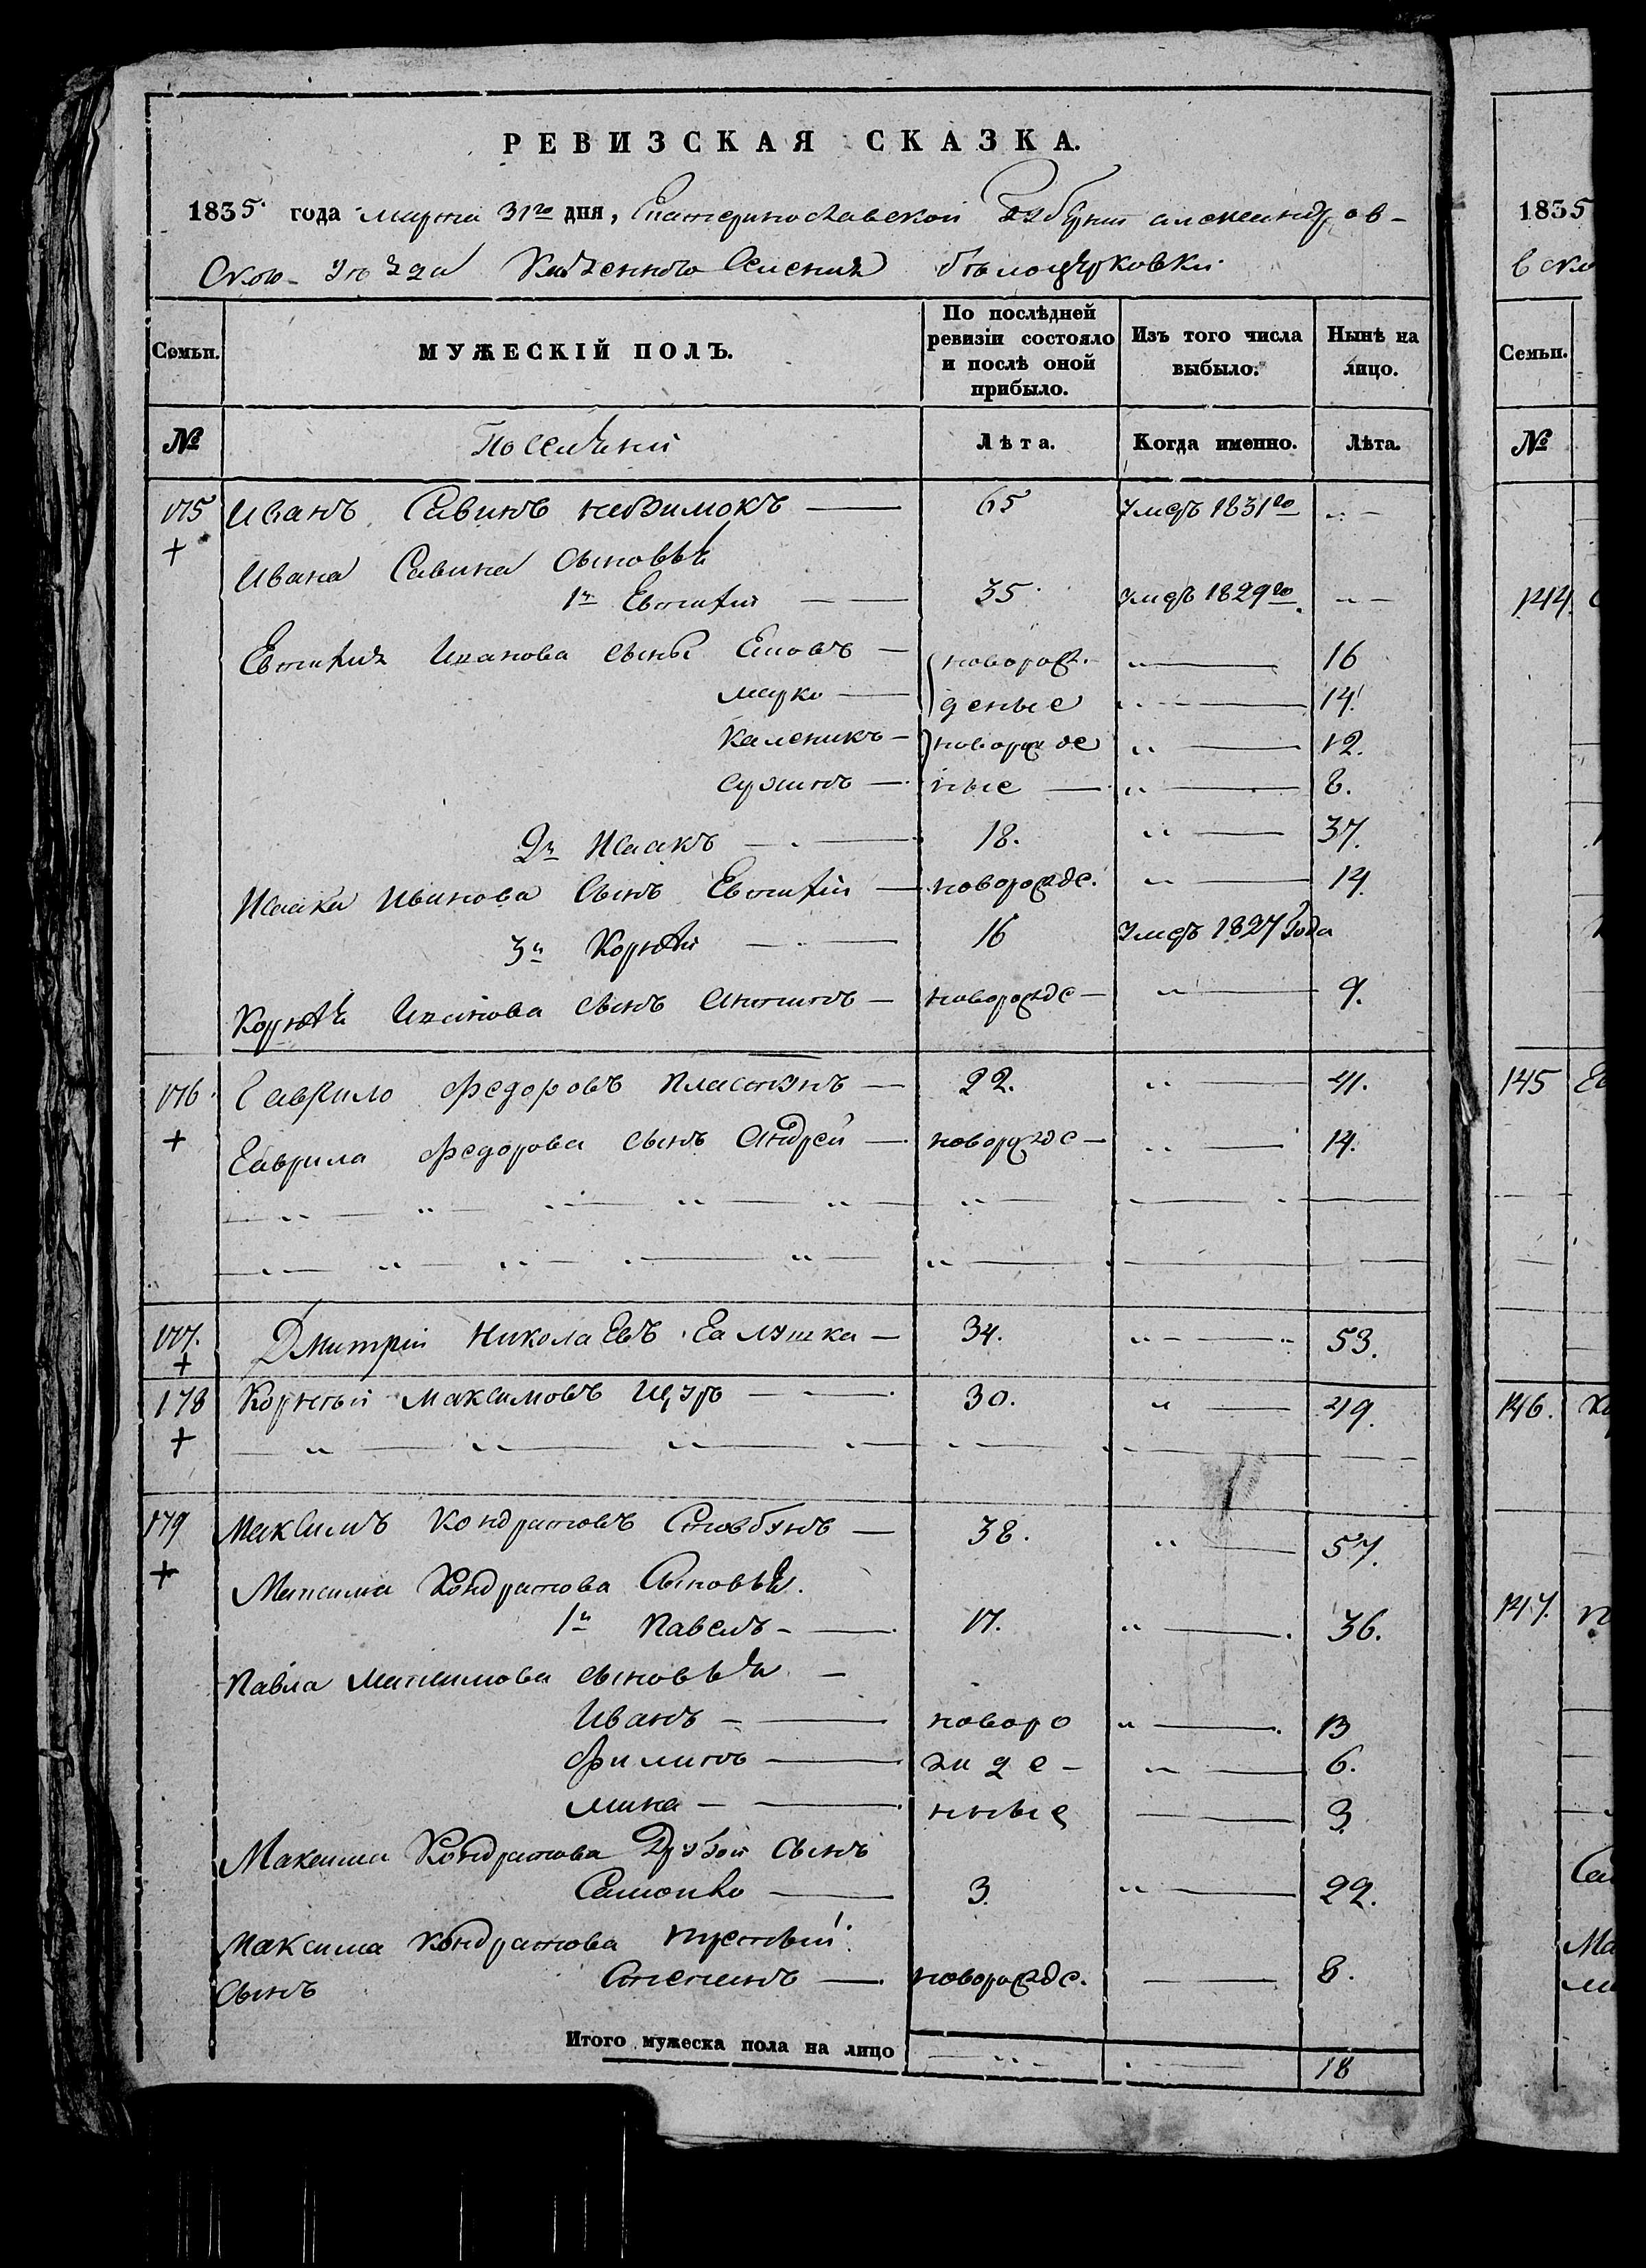 РЕВИЗСКАЯ СКАЗКА.
1835 года марта 31го дня, Екатеринославской Губернии александров-
ского уезда Казенного Селения бѣлоцерковки
1835
Семьи. МУЖЕСКІЙ ПОЛЪ. По послѣдней ревизіи состояло и послѣ оной прибыло. Изъ того числа выбыло. Нынѣ на лицо.
Семьи.
№ Поселяний Лѣта. Когда именно. Лѣта.
№
175 Иванъ Савинъ 65 умеръ 1831го
Ивана Савина сыновья
1й Евтихій 35 умеръ 1829го
144
Евтихия Иванова сыны 16
новорож-
марко деные 14
каленикъ новорожде 12.
ные 8.
2й Исаакъ 18. 37.
Исаака Иванова сынъ Евтихій новорожде. 14.
3й Корнѣй 16 умеръ 1827 Года
Корнѣя Иванова сынъ Антонъ новорожде 9.
176 Гаврило федоровъ пластунъ 22. 41.
145
Гаврила федорова сынъ Андрей новорожде 14.
177. Дмитрій николаевъ Галушка 34. 53.
178 Корнѣй максимовъ Щуръ 30. 49.
146.
179 Максимъ кондратовъ Стовбунъ 38. 57.
Максима Кондратова Сыновья.
1й павелъ 17. 36.
147.
павла максимова сыновья
Иванъ новоро 13
филипъ жде 6.
мина нные 3.
Максима Кондратова Другой сынъ
3. 22.
максима кондратова третьий
сынъ Степанъ новорожде. 8.
Итого мужеска пола на лицо 18